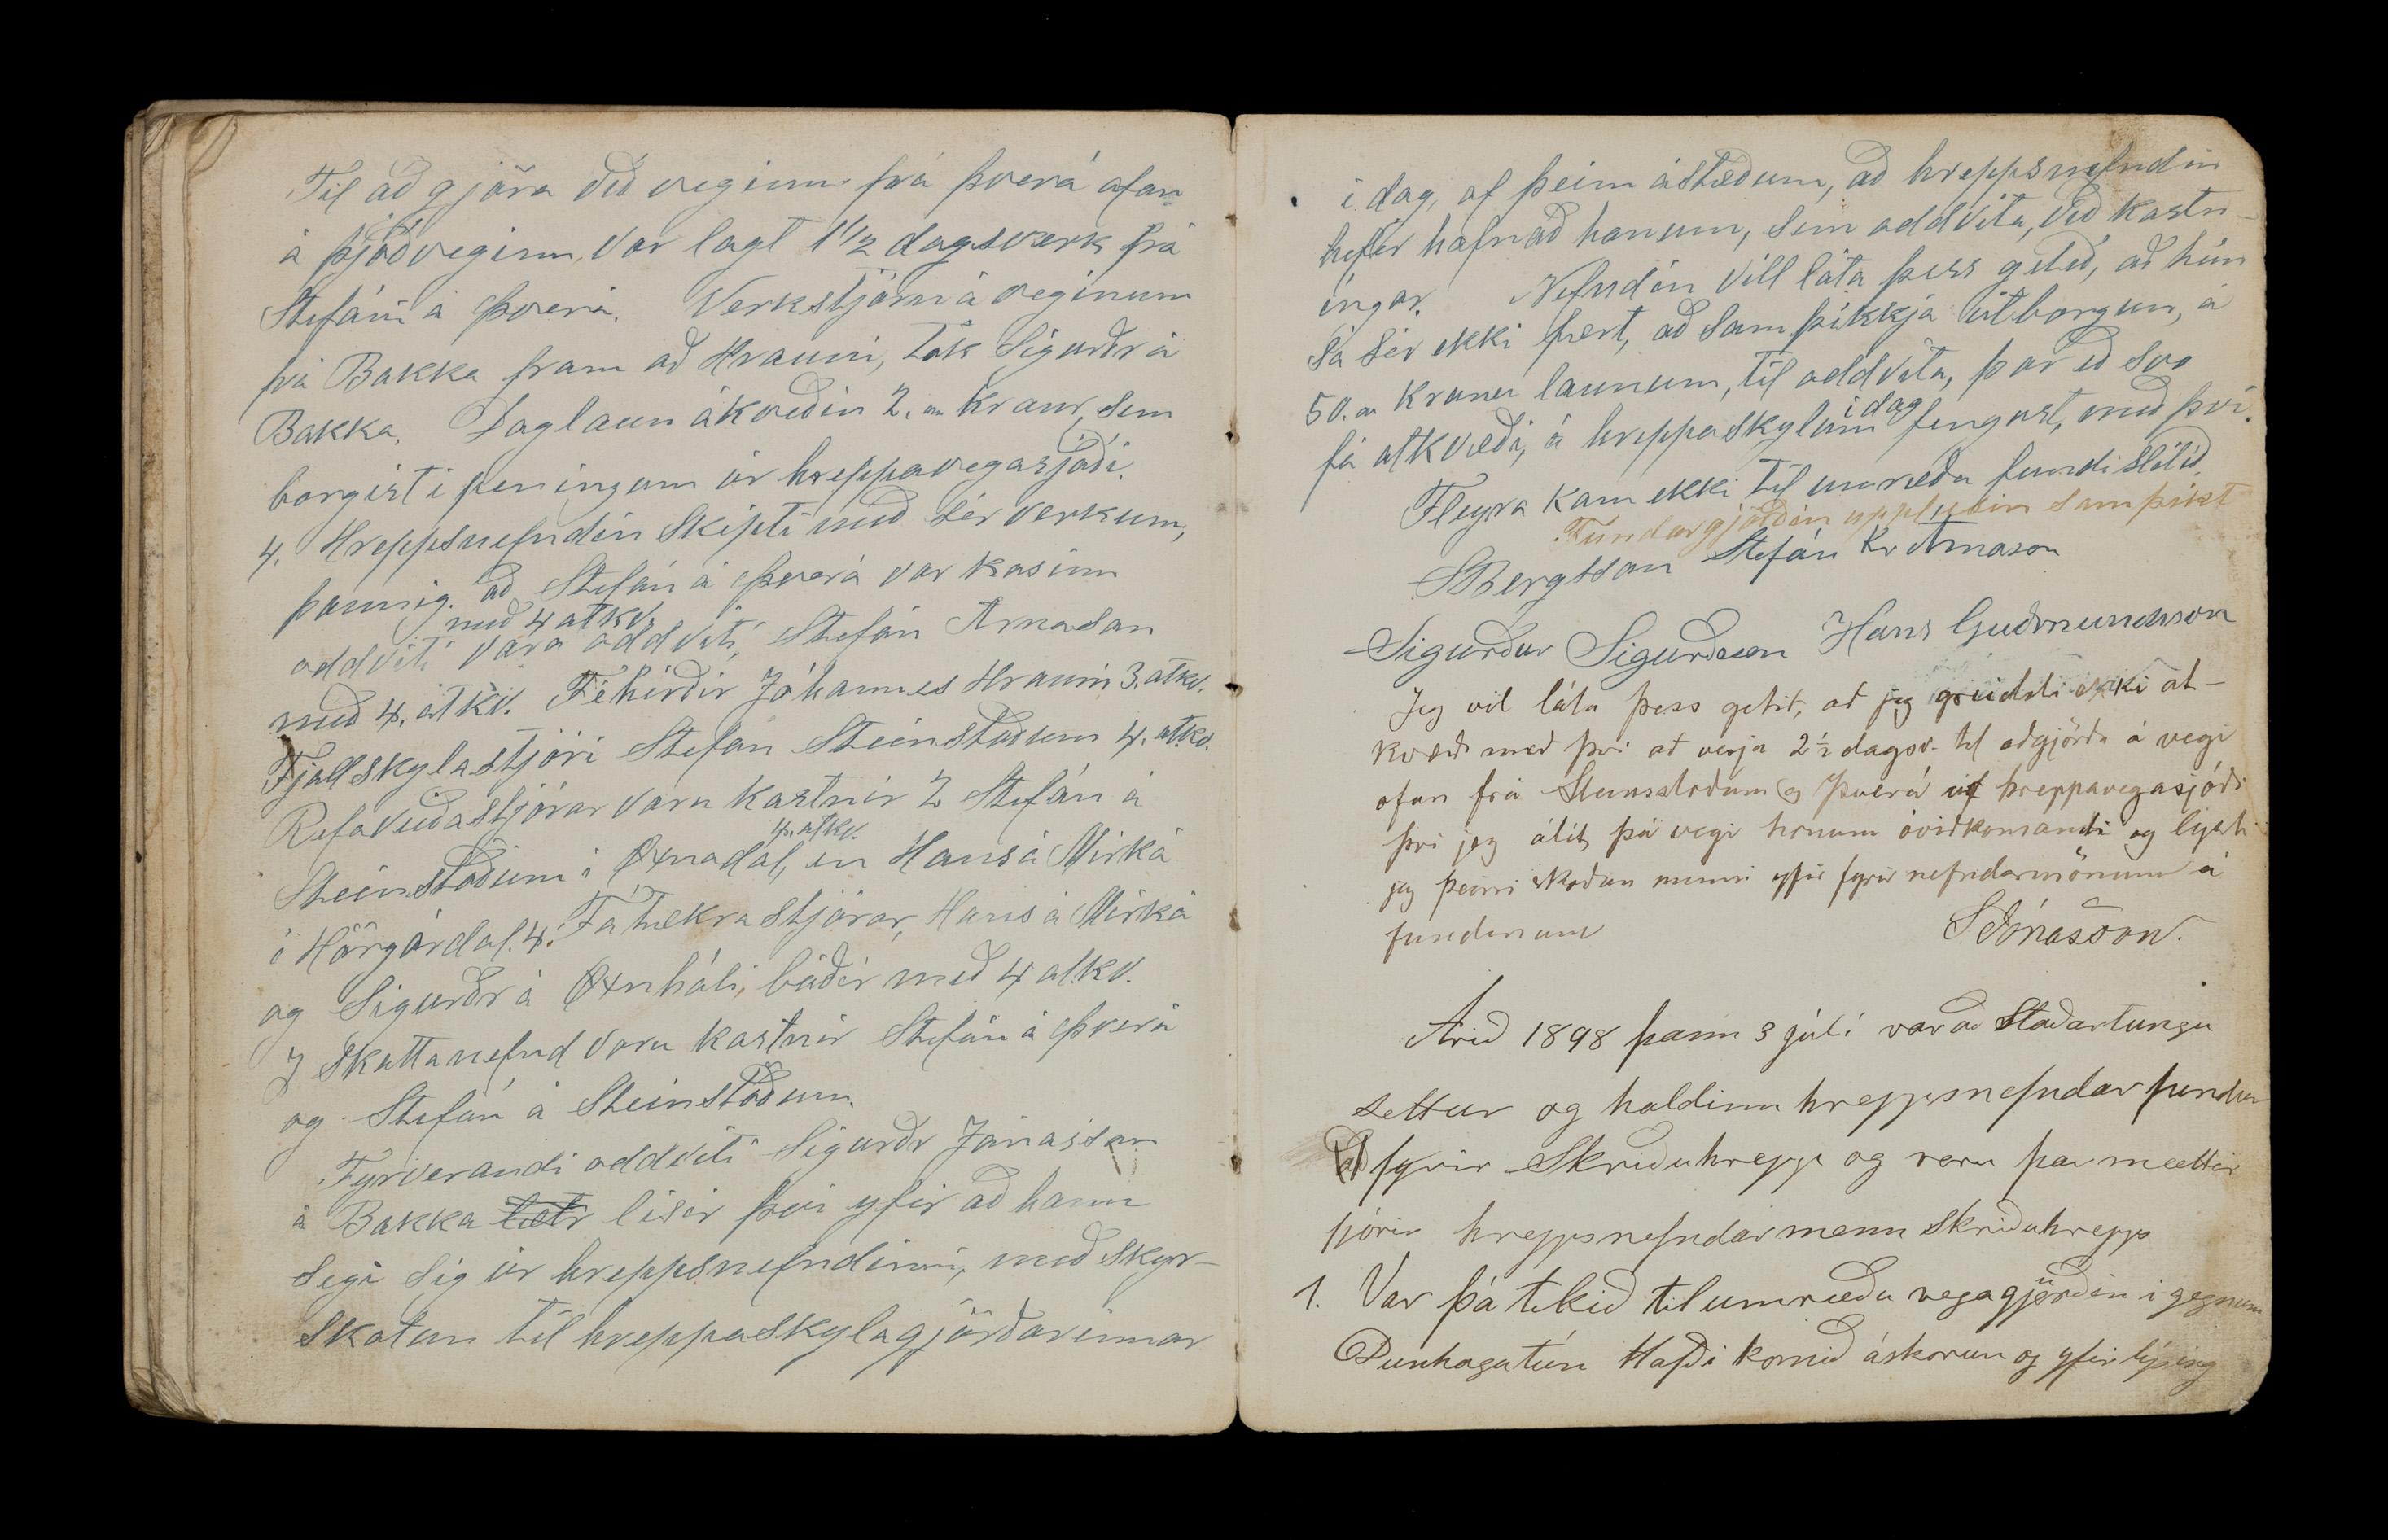 Til að gjöra við veginn frá Þverá ofan
á þjóðveginn, var lagt 1 1/2 dagsverk frá
Stefáni á Þverá. Verkstjórn á veginum
frá Bakka fram að Hrauni, tók Sigurðr á
Bakka. Daglaun ákveðin 2. kr aur, sem
borgist í peningum úr hreppavegasjóði.
4. Hreppsnefndin skipti með sér verkum,
þannig. að Stefán á Þverá var kosinn
með 4 atkv.
oddviti vara oddviti, Stefán Árnason
með 4. atkv. Féhirðir Jóhannes Hrauni 3. atkv.
Fjallskylastjóri Stefán Steinstöðum 4. atkv.
Refaveiðastjórar voru kostnir 2 Stefán á
4. atkv.
Steinstöðum í Øxnadal, en Hans á Mirká
í Hörgárdal. 4. Fátækrastjórar, Hans á Mirká
og Sigurðr á Øxnhóli, báðir með 4 atkv.
Í Skattanefnd voru kostnir Stefán á Þverá
og Stefán á Steinstöðum.
Fyrverandi oddviti Sigurðr Jónasson
á Bakka lætr lisir því yfir að hann
segi sig úr hreppsnefndinni, með skyr-
skotun til hreppaskylagjörðarinnar
í dag, af þeim ástæðum, að hreppsnefndin
hefir hafnað honum, sem oddvita, við kostn-
ingar. Nefndin vill láta þess getið, að hún
sá sér ekki fært, að samþikkja útborgun, á
50. kr króna launum, til oddvita, þar eð svo
í dag
fá atkvæði, á hreppaskylum fengust, með því.
Fleyra kom ekki til umræðu fundi slitið.
Fundargjörðin upplesin samþikt
SBergsson Stefán Kr Árnason
Sigurður Sigurðsson Hans Guðmundsson
Jeg vil láta þess getið, at jeg greiddi ekki at-
kvæði með því at verja 2 1/2 dagsv. til aðgjörða á vegi
ofan frá Steinstöðum og Þverá úr hreppavegasjóði
því jeg álít þá vegi honum óviðkomandi og lýsti
jeg þeirri skoðun minni yfir fyrir nefndarmönnum á
fundinum SJónasson.
Árið 1898 þann 3 júlí var að Staðartungu
settur og haldinn hreppsnefndar fundur
að fyrir Skriðuhrepp og voru þar mættir
fjórir hreppsnefndarmenn Skriðuhrepps
1. Var þá tekið til umræðu vegagjörðin í gegnum
Dunhagatún Hafði komið áskorun og yfirlýsing